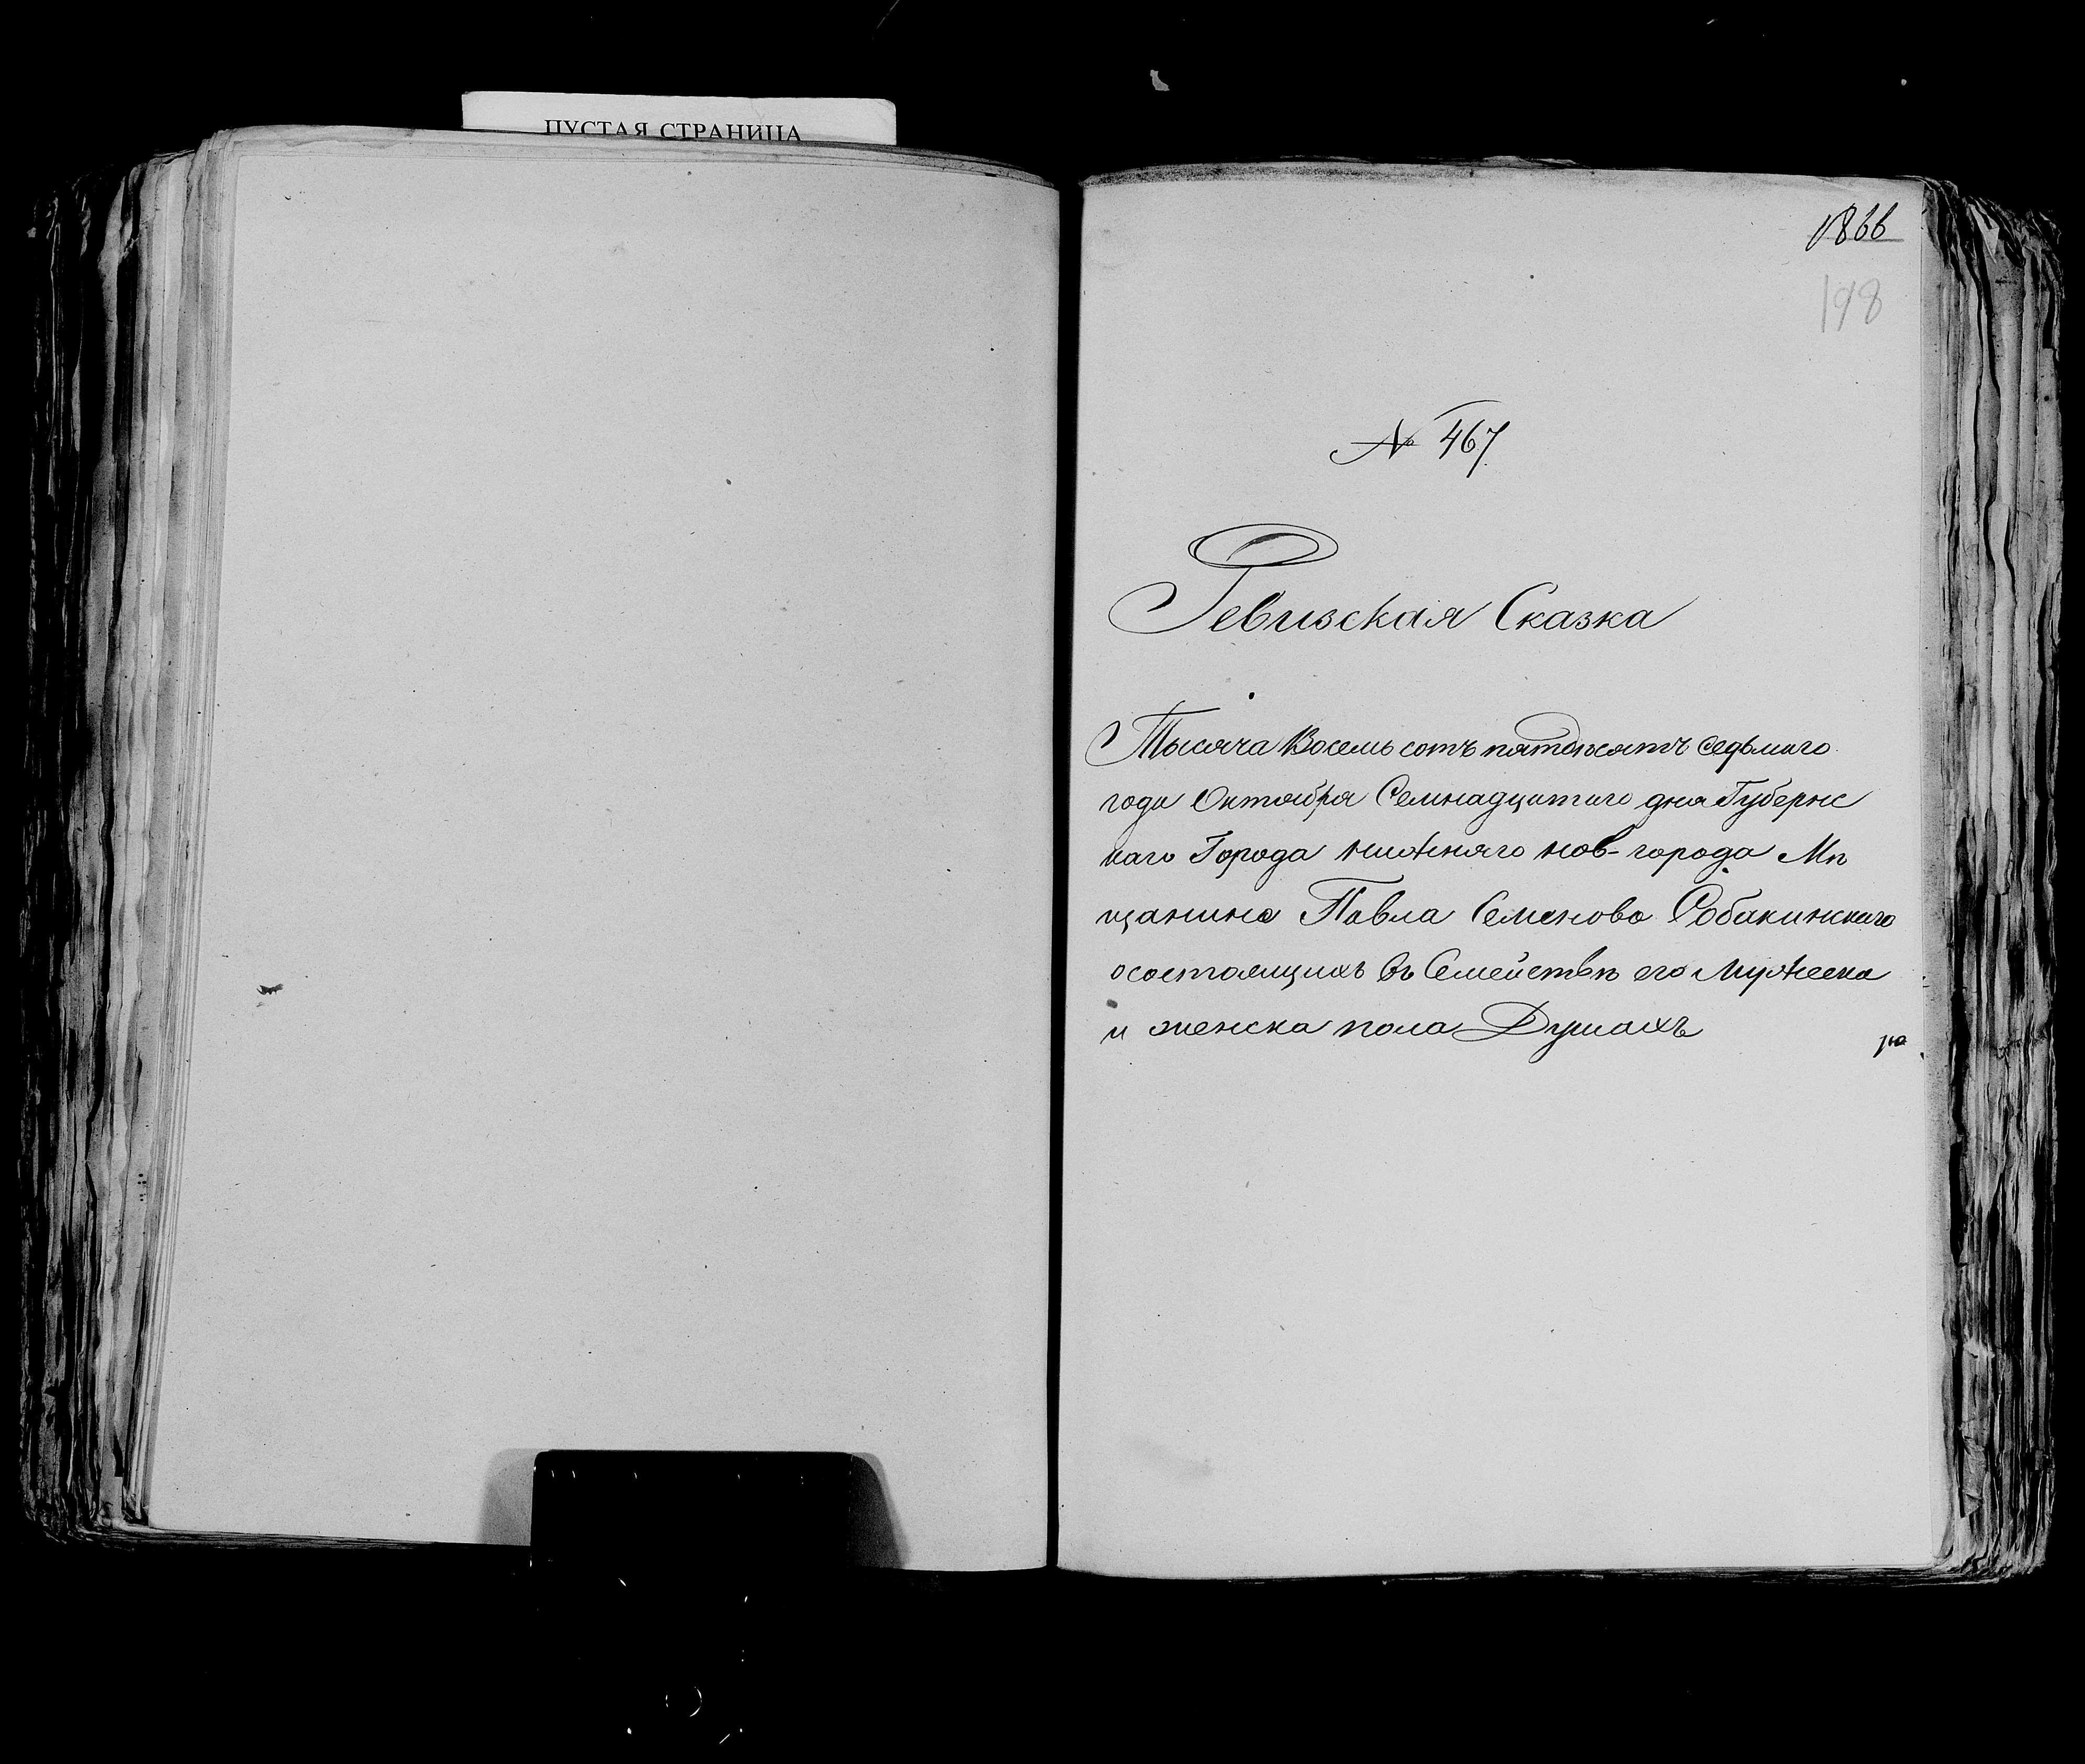 ПУСТАЯ СТРАНИЦА
1866
198
№ 467.
Ревизская Сказка
Тысяча Восемь сотъ пятдесятъ седьмаго
года Октября Семнадцатаго дня Губернс
каго Города нижняго нов-города Мѣ
щанина Павла Семенова Собакинскаго
осостоящихъ въ Семействѣ его Мужеска
и женска пола Душахъ